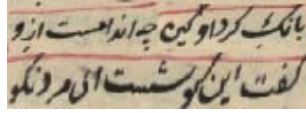 بانک کرد او کین چه اندامست ازو
گفت این گوشست ای مرد نکو